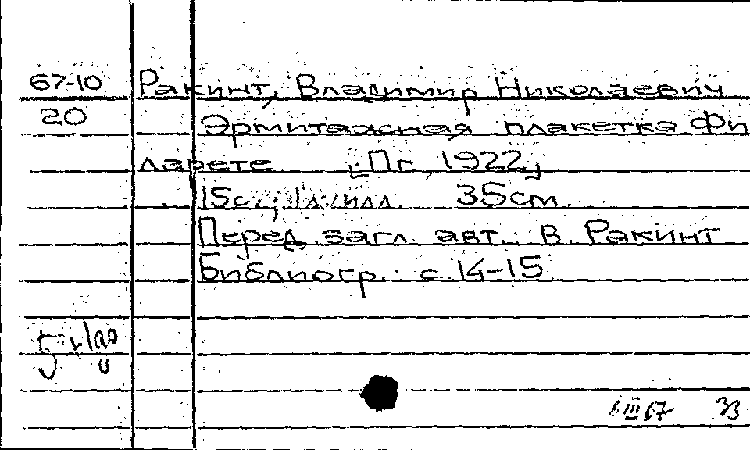 67-10 Ракинт, Владимир Николаевич
20 Эрмитажная плакетка Фи
ларете. [Пг., 1922]
15с., 1л. илл. 35см.
Перед загл. авт.: В. Ракинт
Библиогр.: с. 14-15
III 67 33